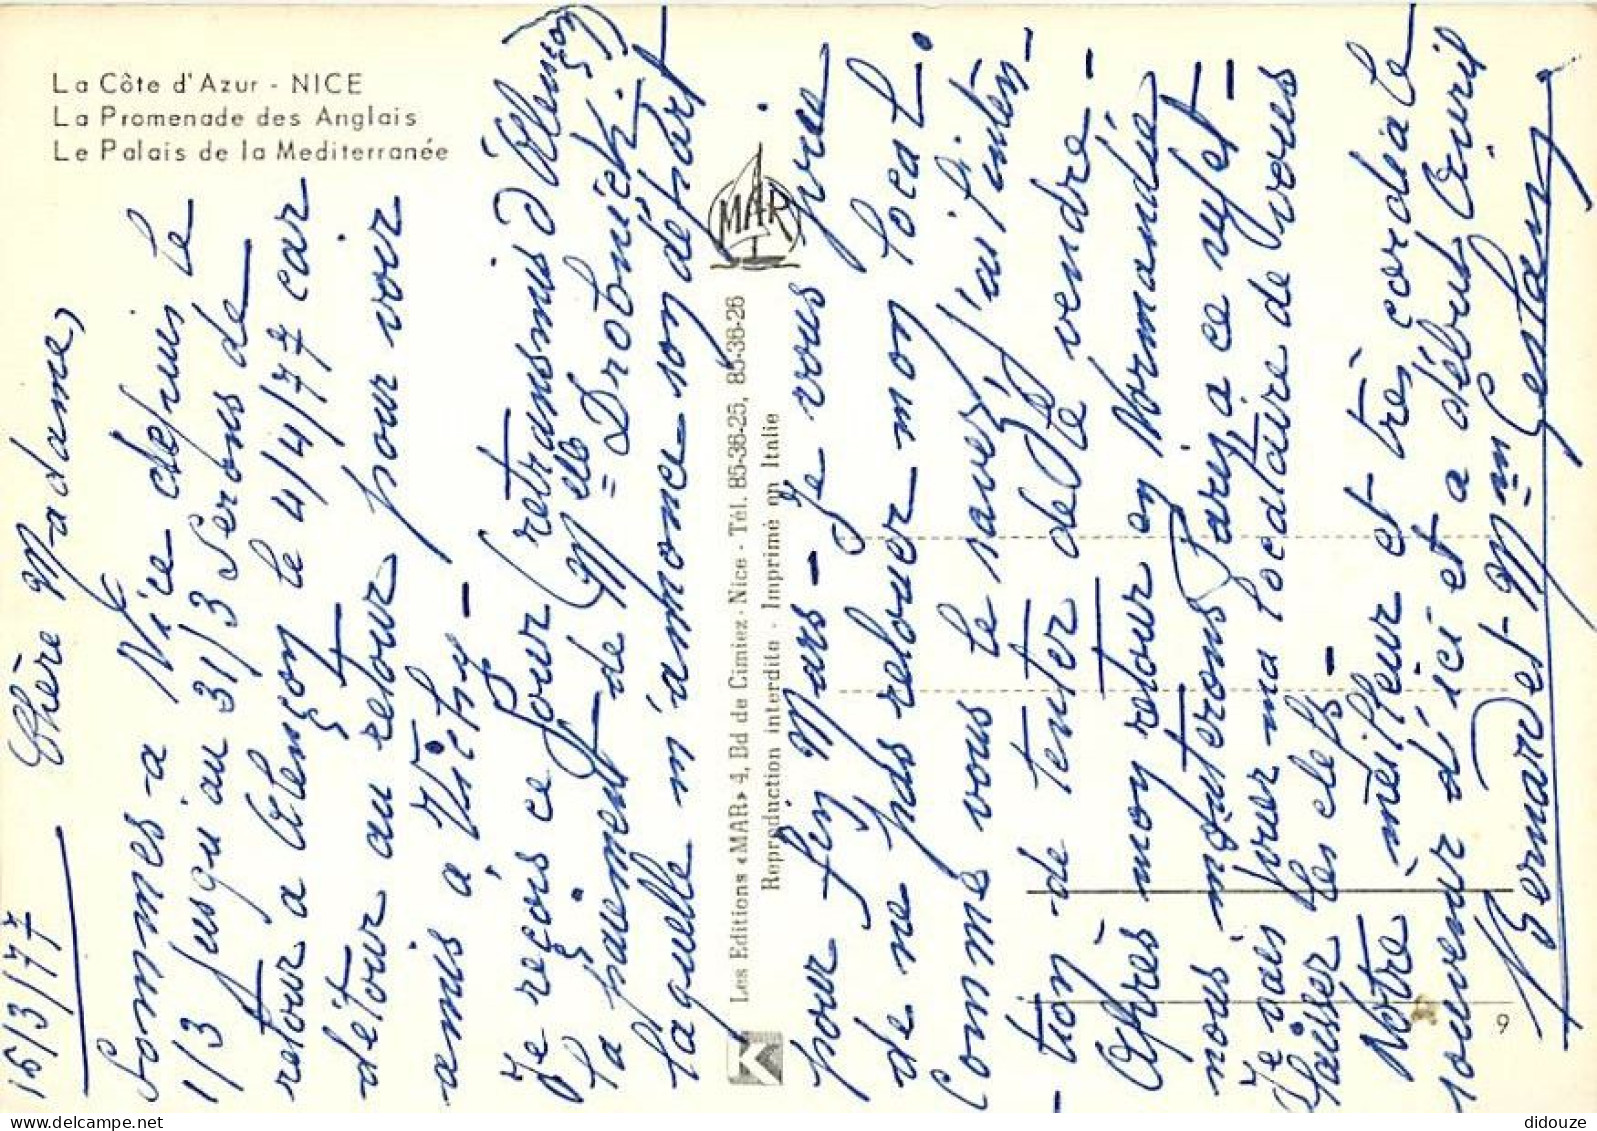 La Côte d'Azur - NICE
La Promenade des Anglais
Le Palais de la Mediterranée
15/3/77
Chère Madame,
Sommes à Nice depuis le
1/3 jusqu'au 31/3 Serons de
retour à Alençon le 4/4/77 car
détour au retour pour voir
amis à Vichy -
Je reçois ce jour (retransmis d'Alençon)
la paiement de Melle Drobnich.
laquelle m'annonce son départ
pour fin Mars - Je vous prie
de ne pas relouer mon local.
Comme vous le savez, j'ai l'inten-
- tion de tenter de le vendre -
Après mon retour en Normandie
nous monterons Paris à ce sujet -
Je vais prier ma locataire de vous
laisser les clefs -
Notre meilleur et très cordiale
souvenir d'ici et à début Avril
Bernard et Mme Gestany
Les Editions «MAR» 4, Bd de Cimiez - Nice - Tél. 85-36-25, 85-36-26
Reproduction interdite - Imprimé en Italie
MAR
K
9
didouze